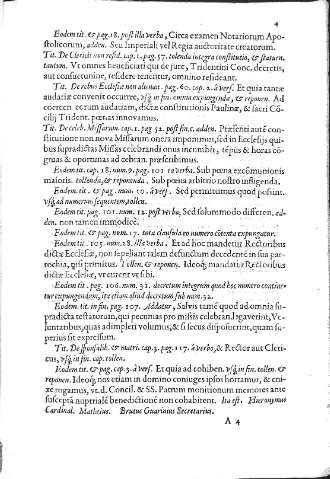 4
Eodem tit. & pag.18. post illa verba, Circa examen Notariorum Apo-
stolicorum, adden. Seu Imperiali vel Regia auctoritate creatorum.
Tit. De Clericis non resid. cap.1. pag.57. tolenda integra constitutio, & statuen.
tantum. Vt omnes beneficiati qui de jure, Tridentini Conc. decretis,
aut consuetudine, residere tenentur, omnino resideant.
Tit. De rebus Ecclesiæ non alienat. pag. 60. cap. 2. à vers. Et quia tantæ
audaciæ convenit occurrere, vsq; in fin. omnia expungenda, & reponen. Ad
coercen. eorum audaciam, dictæ constitutionis Paulinæ, & sacri Cō-
cilij Trident. pœnas innovamus.
Tit. De celeb. Missarum cap.1. pag 52. post fin. c. adden. Præsenti autē con-
stitutione non nova Missarum onera imponimus, sed in Ecclesijs qui-
bus supradictas Missas celebrandi onus incumbit, tēpus & horas cō-
gruas & oportunas ad celebran. præscribimus.
Eodem tit. cap. 18. num. 9. pag. 101 ea verba. Sub pœna excōmunionis
maioris. tollenda, & reponenda. Sub pœna arbitrio nostro infligenda.
Eodem tit. & pag. num. 10. à vers. Sed permittimus quod possint.
vsq; ad numerum sequentem, tollen.
Eodem tit. pag. 101. num. 12. post verba, Sed solummodo differen. ad-
den. non tamen immodicè.
Eodem tit. & pag. num. 17. tota clausula eo numero cōtenta expungatur.
Eodem tit. pag. 105. num. 28. ille verba. Et ad hoc mandetur Rectoribus
dictæ Ecclesiæ, non sepeliant talem defunctum decedente in sua pa-
rochia, ipsi primitus. Tollen. & reponen. Ideoq; mandatur Rectoribus
dictæ Ecclesiæ, vt curent vt sibi.
Eodem tit. pag. 106. num. 31. decretum integrum quod hoc numero contine-
tur expungendum, ite etiam aliud decretum sub num. 32.
Eodem tit. in fin. pag. 107. Addatur, Salvis tamē quoad ad omnia su-
pradicta testatorum, qui pecunias pro missis celebrand. legaverint, Vo-
luntatibus, quas adimpleri volumus, & si secus disposuerint, quam su-
perius fit expressum.
Tit. De sponsalib. & matri. cap. 3. pag. 117. à verbo, & Rector aut Cleri-
cus, vsq; in fin. cap. tollen.
Eodem tit. & pag. cap. 3. à vers. Et quia ad cohiben. vsq; in fin. tollen. &
reponen. Ideoq; nos etiam in domino coniuges ipsos hortamur, & eni-
xe rogamus, vt. d. Concil. & SS. Patrum monitionum memores ante
susceptā nuptialē benedictionē non cohabitent. Ita est. Hieronymus
Cardinal. Matheius. Brutus Guarinus Secretarius.
A 4